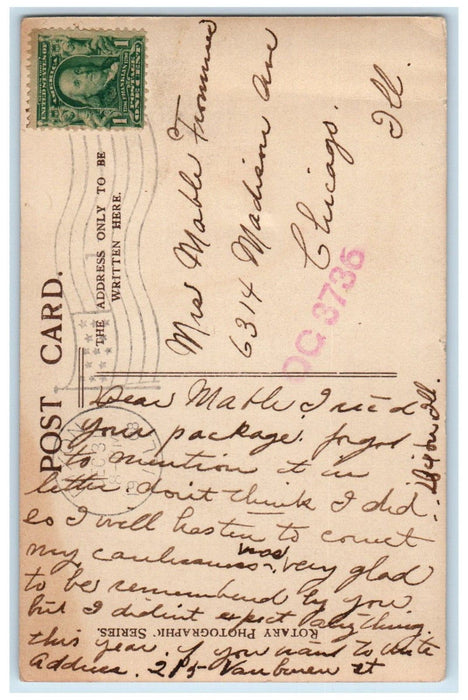 POST CARD.
THE ADDRESS ONLY TO BE
WRITTEN HERE.
UNITED STATES OF AMERICA
FRANKLIN
1 ONE CENT 1
Miss Mable Trommer
6314 Madison Ave
Chicago.
Ill.
OC 3735
Dear Mable, I rec'd
your package. forgot
to mention it in
letter don't think I did.
so I will hasten to correct
my carelessness was very glad
to be remembered by you.
but I didn't expect anything
this year. if you want to write
Address. 215 Van buren st
Dixon Ill.
ROTARY PHOTOGRAPHIC SERIES.